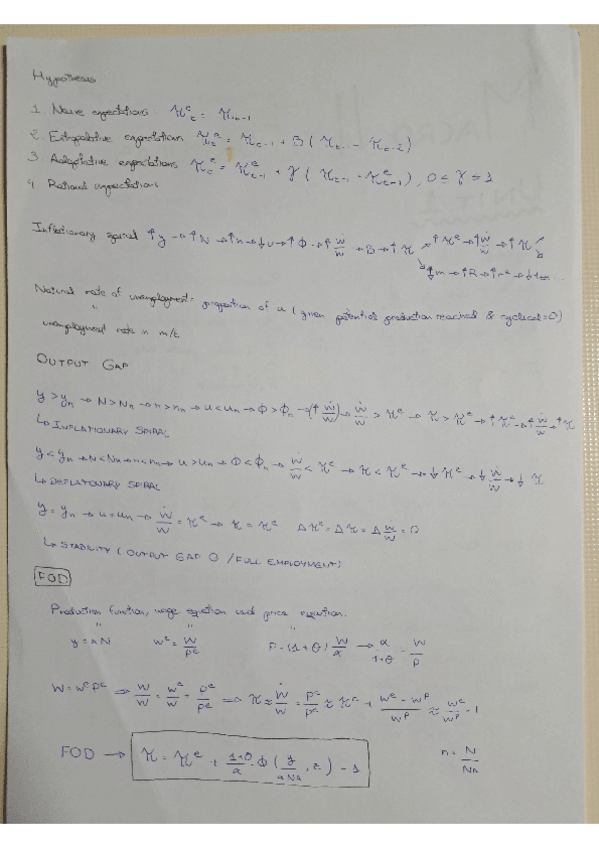 Hypothesis
1. Naive expectations. π^e_t = π_t-1
2. Extrapolative expectations π^e_t = π_t-1 + B ( π_t-1 - π_t-2 )
3. Adaptative expectations π^e_t = π^e_t-1 + γ ( π_t-1 - π^e_t-1 ), 0 ≤ γ ≤ 1
4. Rational expectations
Inflationary spiral ↑y → ↑N → ↑n → ↓u → ↑Φ → ↑Ẇ/W → B → ↑π → ↑π^e → ↑Ẇ/W → ↑π
↓m → ↑R → ↑r^e → ...
Natural rate of unemployment = proportion of u ( given potential production reached & cyclical = 0 )
"
unemployment rate in m/l
OUTPUT GAP
y > y_n → N > N_n → n > n_n → u < u_n → Φ > Φ_n → (↑Ẇ/W) → Ẇ/W > π^e → π > π^e → ↑π^e → ↑Ẇ/W → ↑π
↳ INFLATIONARY SPIRAL
y < y_n → N < N_n → n < n_n → u > u_n → Φ < Φ_n → Ẇ/W < π^e → π < π^e → ↓π^e → ↓Ẇ/W → ↓π
↳ DEFLATIONARY SPIRAL
y = y_n → u = u_n → Ẇ/W = π^e → π = π^e Δπ^e = Δπ = ΔẆ/W = 0
↳ STABILITY ( OUTPUT GAP 0 / FULL EMPLOYMENT)
FOD
Production function, wage equation and price equation.
" " "
y = aN w^e = W/P^e P = (1+θ) W/a → a/1+θ = W/P
W = w^e P^e ⇒ Ẇ/W = ẇ^e/w^e + Ṗ^e/P^e ⇒ π ≈ Ẇ/W = Ṗ^e/P^e ≈ π^e + w^e - w^P/w^P ≈ w^e/w^P - 1
FOD → π = π^e + 1+θ/a · Φ ( y/aN_a , z ) - 1
n = N/N_a